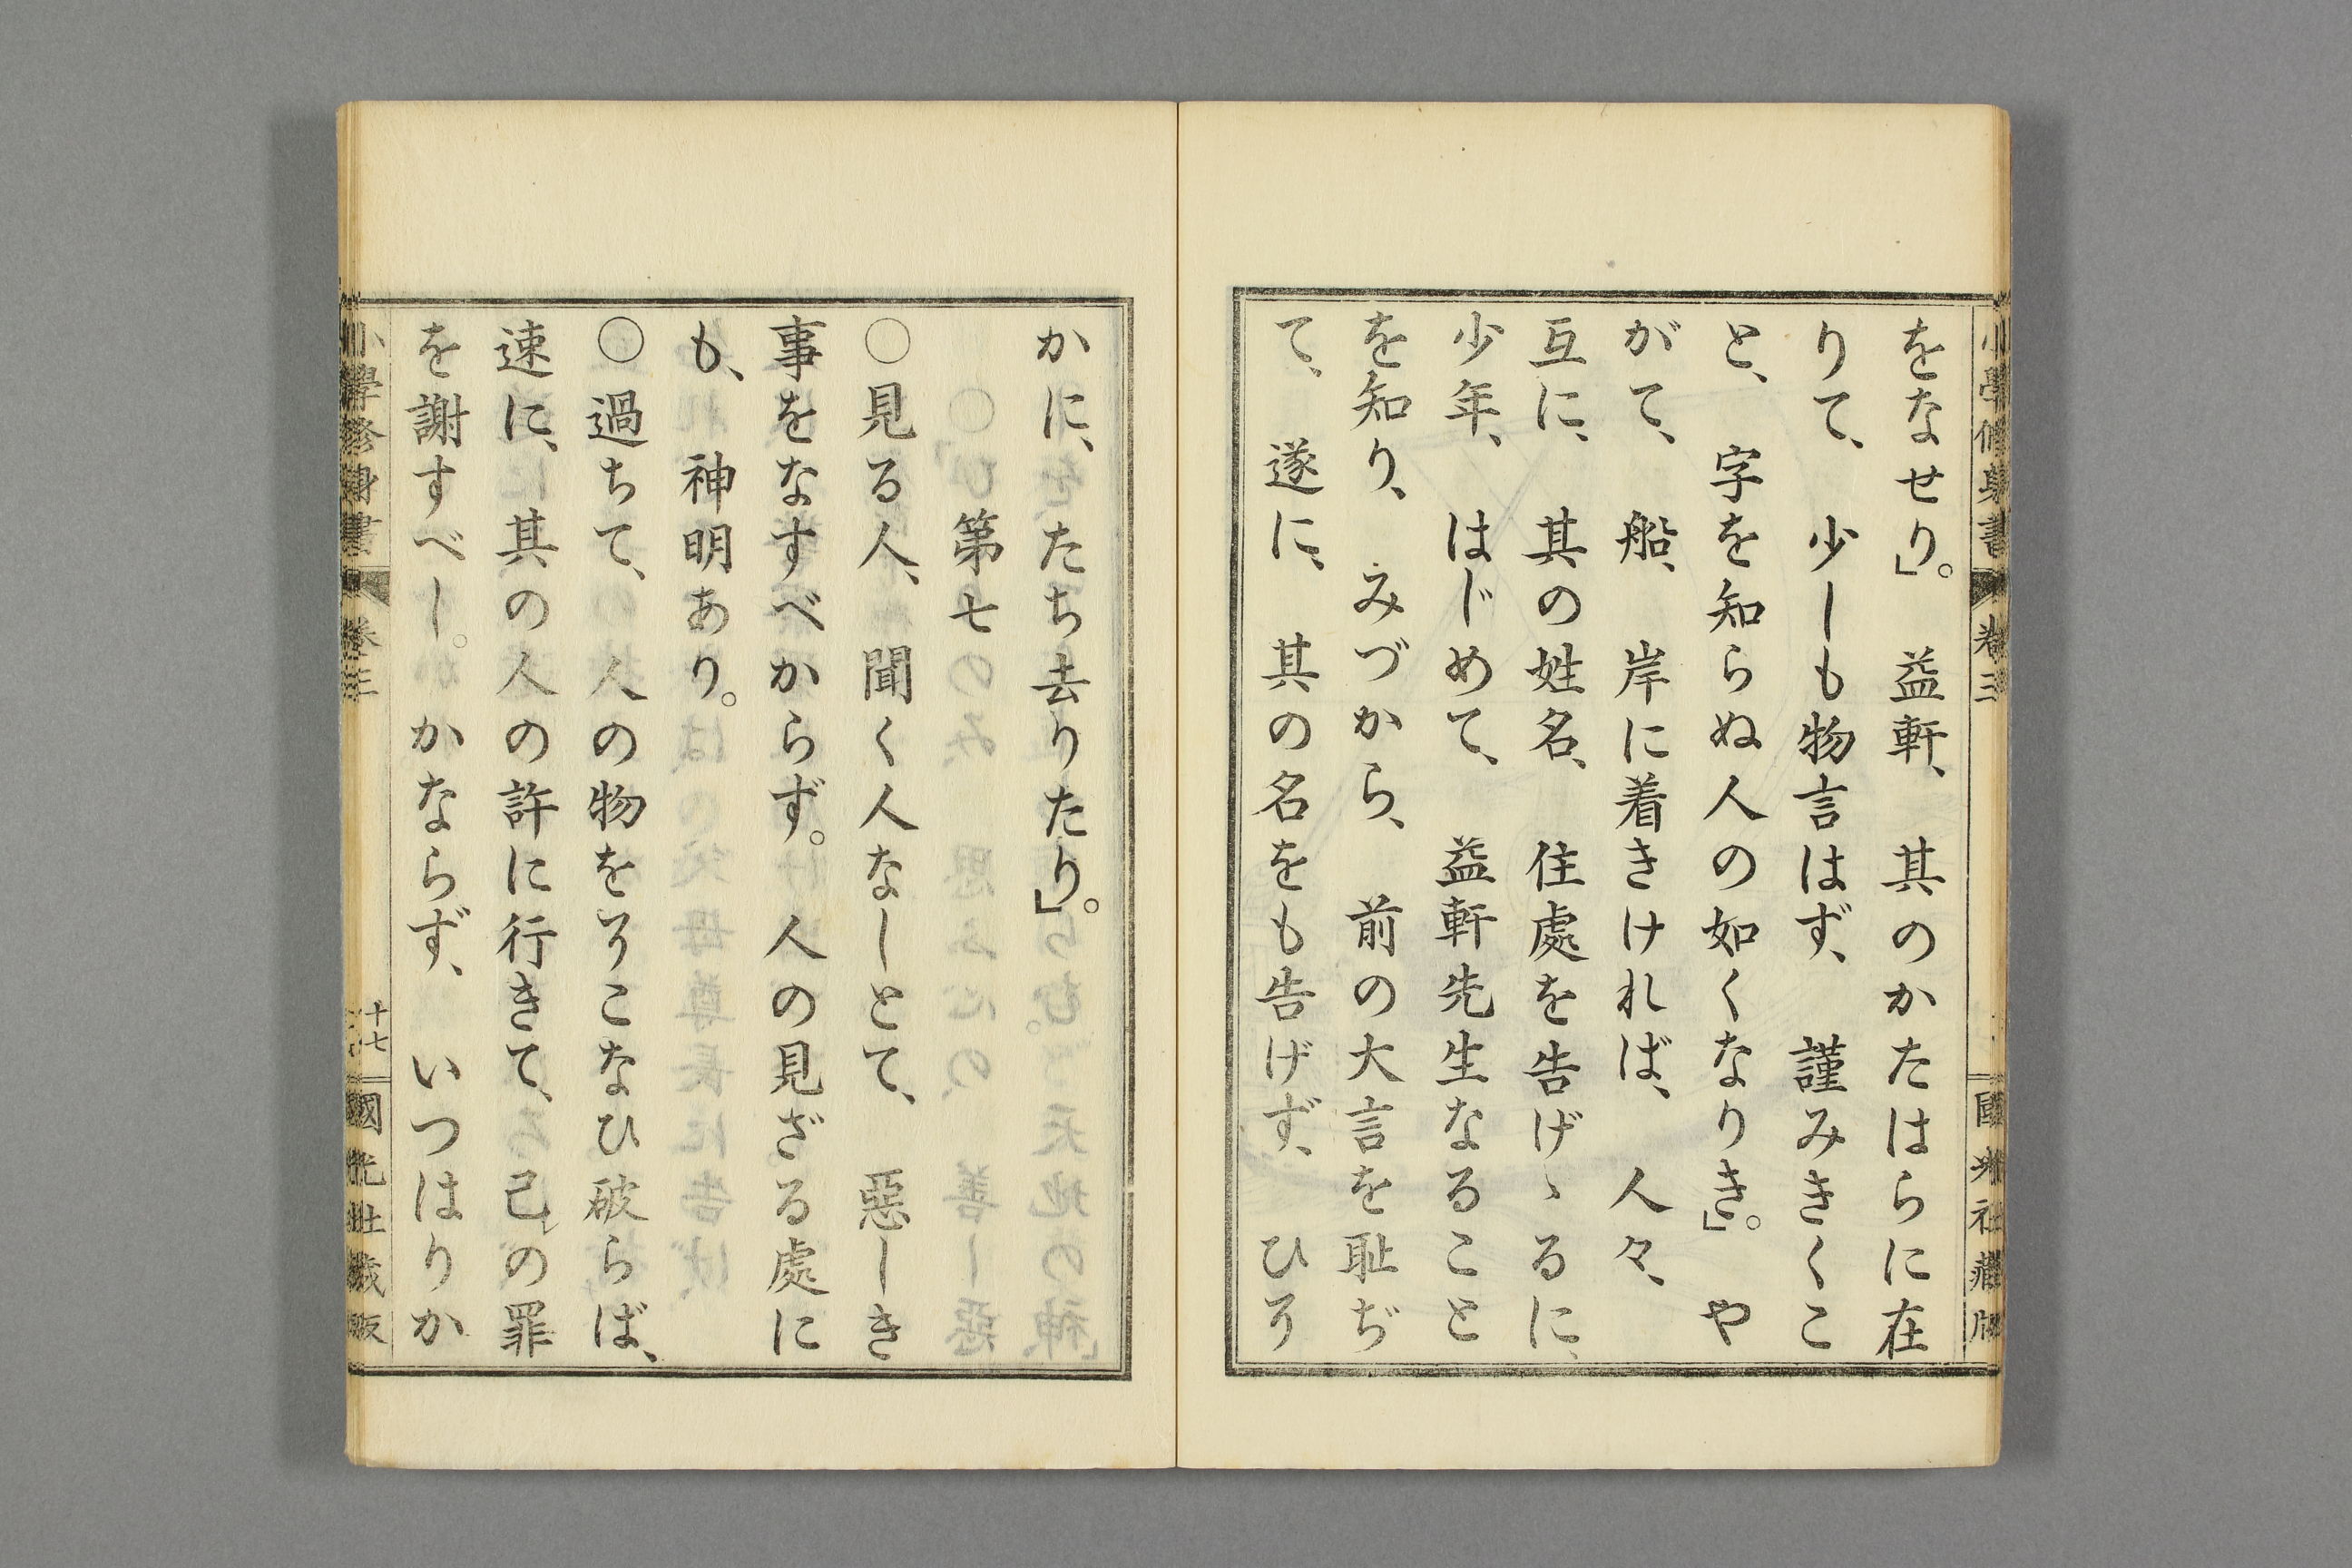 小學修身書 卷三 國光社藏版
をなせり」。 益軒、 其のかたはらに在
りて、 少しも物言はず、 謹みきくこ
と、 字を知らぬ人の如くなりき」。 や
がて、 船、 岸に着きければ、 人々、
互に、 其の姓名、 住處を告げゝるに、
少年、 はじめて、 益軒先生なること
を知り、 みづから、 前の大言を耻ぢ
て、 遂に、 其の名をも告げず、 ひそ
かに、 たち去りたり」。
第七
○見る人、 聞く人なしとて、 惡しき
事をなすべからず。 人の見ざる處に
も、 神明あり。
○過ちて、 人の物をそこなひ破らば、
速に、 其の人の許に行きて、 己の罪
を謝すべし。 かならず、 いつはりか
小學修身書 卷三 十七 國光社藏版